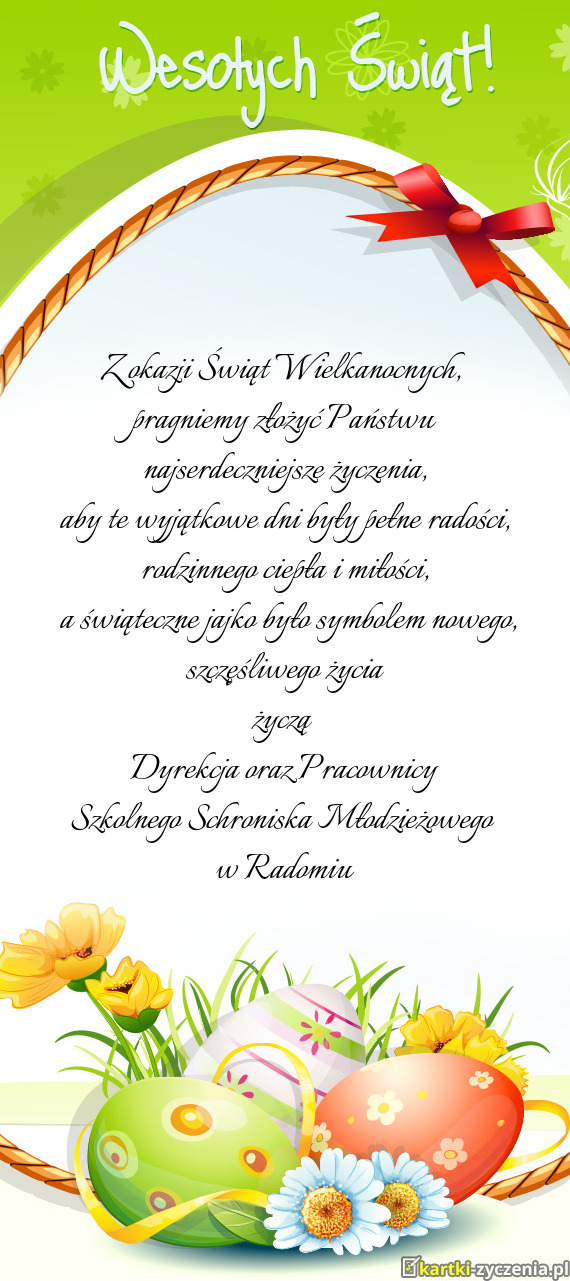 Wesołych Świąt!
Z okazji Świąt Wielkanocnych,
pragniemy złożyć Państwu
najserdeczniejsze życzenia,
aby te wyjątkowe dni były pełne radości,
rodzinnego ciepła i miłości,
a świąteczne jajko było symbolem nowego,
szczęśliwego życia
życzą
Dyrekcja oraz Pracownicy
Szkolnego Schroniska Młodzieżowego
w Radomiu
kartki-zyczenia.pl